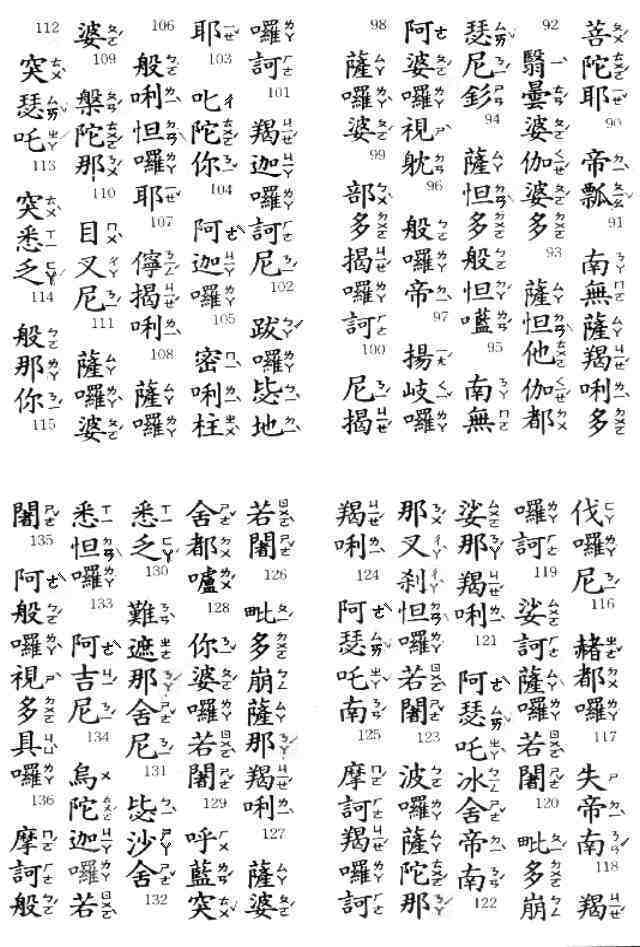 菩陀耶 90 帝瓢 91 南無薩羯唎多
92 翳曇婆伽婆多 93 薩怛他伽都
瑟尼釤 94 薩怛多般怛囕 95 南無
阿婆囉視耽 96 般囉帝 97 揚岐囉
98 薩囉婆 99 部多揭囉訶 100 尼揭
囉訶 101 羯迦囉訶尼 102 跋囉毖地
耶 103 叱陀你 104 阿迦囉 105 密唎柱
106 般唎怛囉耶 107 儜揭唎 108 薩囉
婆 109 槃陀那 110 目叉尼 111 薩囉婆
112 突瑟吒 113 突悉乏 114 般那你 115
伐囉尼 116 赭都囉 117 失帝南 118 羯
囉訶 119 娑訶薩囉若闍 120 毗多崩
娑那羯唎 121 阿瑟吒冰舍帝南 122
那叉剎怛囉若闍 123 波囉薩陀那
羯唎 124 阿瑟吒南 125 摩訶羯囉訶
若闍 126 毗多崩薩那羯唎 127 薩婆
舍都嚧 128 你婆囉若闍 129 呼藍突
悉乏 130 難遮那舍尼 131 毖沙舍 132
悉怛囉 133 阿吉尼 134 烏陀迦囉若
闍 135 阿般囉視多具囉 136 摩訶般